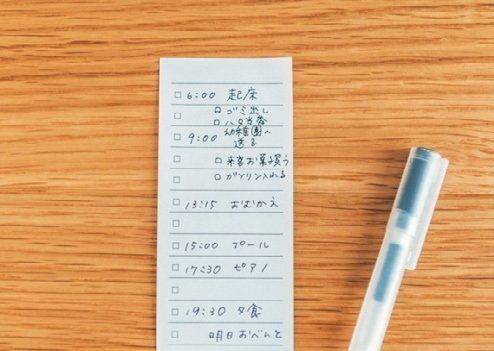 6:00 起床
ゴミ出し
ハタ当番
9:00 幼稚園へ
送る
来客お菓子買う
ガソリン入れる
13:15 おむかえ
15:00 プール
17:30 ピアノ
19:30 夕食
明日おべんと